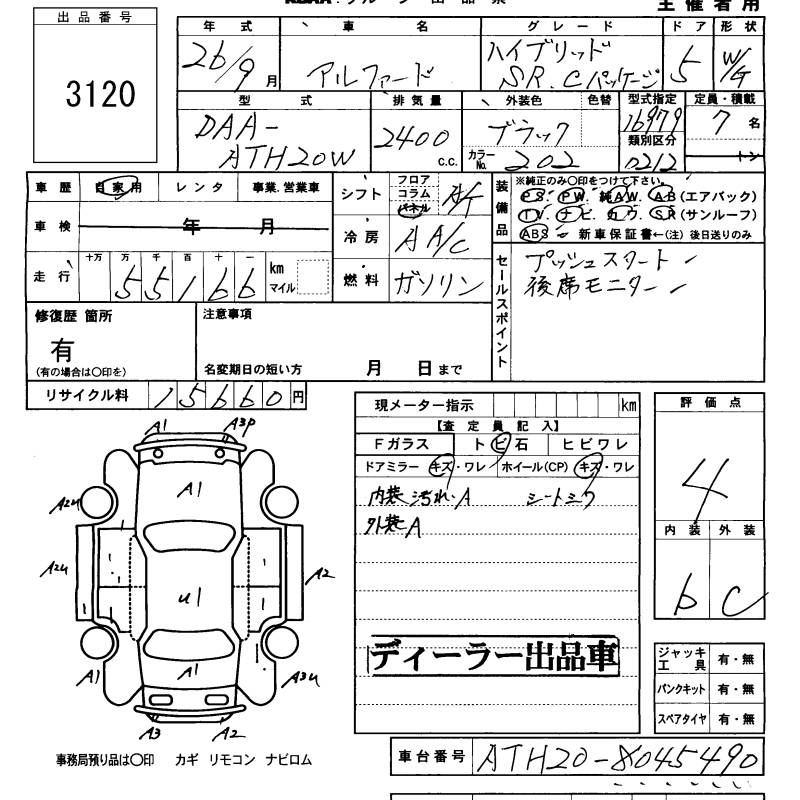 主催者用
出品番号
3120
年式 車名 グレード ドア 形状
26/9月 アルファード ハイブリッド SR.Cパッケージ 5 W/G
型式 排気量 外装色 色替 型式指定 定員・積載
DAA-ATH20W 2400 c.c. ブラック 16979 7名
カラーNo. 202 類別区分 0212 トン
車歴 自家用 レンタ 事業.営業車
シフト フロア コラム パネル AT
装備品 ※純正のみ○印をつけて下さい。
PS. PW. 純AW. AB(エアバック)
TV. ナビ. カワ. SR(サンルーフ)
ABS 新車保証書←(注)後日送りのみ
車検 年 月
冷房 AA/C
走行 十万 万 千 百 十 一 km マイル
55166
燃料 ガソリン
セールスポイント
プッシュスタート
後席モニター
修復歴 箇所
有
(有の場合は○印を)
注意事項
名変期日の短い方 月 日まで
リサイクル料 15660円
現メーター指示 km
【査定員記入】
Fガラス トビ石 ヒビワレ
ドアミラー キズ・ワレ ホイール(CP) キズ・ワレ
内装 汚れ.A シートシワ
外装A
ディーラー出品車
評価点
4
内装 外装
b C
A1 A3P
A1
A2u
A2u
U1
A2
A1
A1
A3u
A3 A2
ジャッキ 工具 有・無
パンクキット 有・無
スペアタイヤ 有・無
事務局預り品は○印 カギ リモコン ナビロム
車台番号 ATH20-8045490